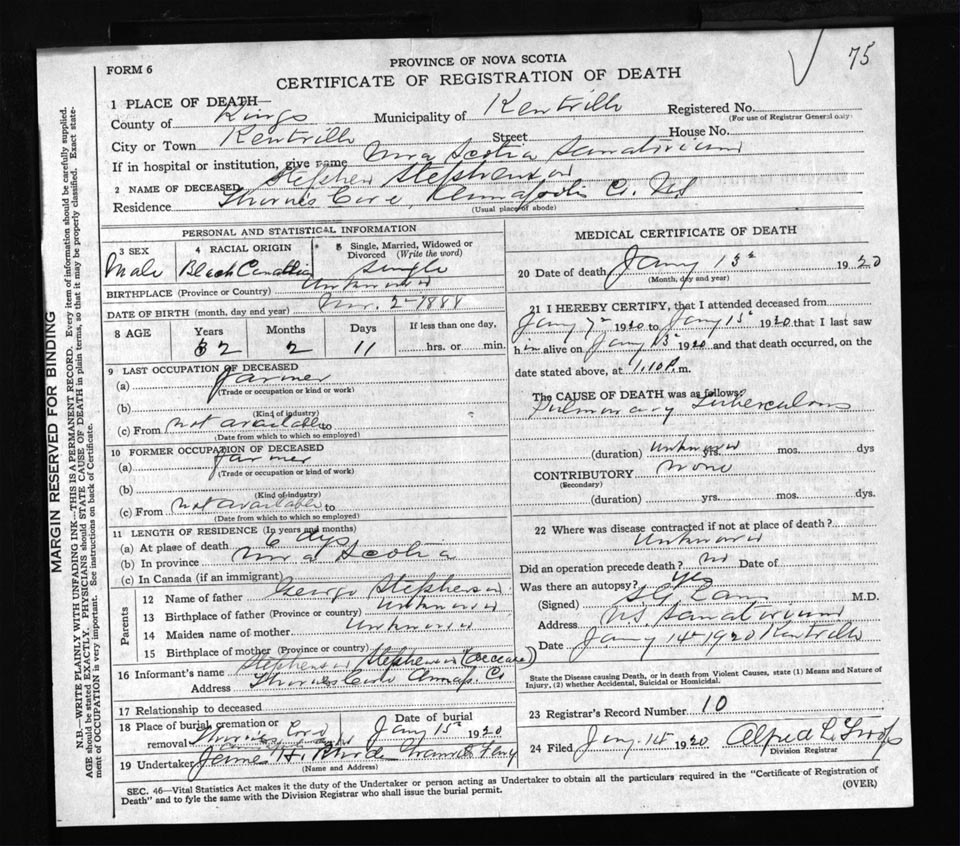 75
FORM 6
PROVINCE OF NOVA SCOTIA
CERTIFICATE OF REGISTRATION OF DEATH
1 PLACE OF DEATH—
County of Kings Municipality of Kentville Registered No.
(For use of Registrar General only)
City or Town Kentville Street House No.
If in hospital or institution, give name Nova Scotia Sanatorium
2 NAME OF DECEASED Stephen Stephenson
Residence Thornes Cove, Annapolis Co. NS
(Usual place of abode)
PERSONAL AND STATISTICAL INFORMATION
3 SEX 4 RACIAL ORIGIN 5 Single, Married, Widowed or Divorced (Write the word)
Male Black Canadian Single
BIRTHPLACE (Province or Country) Unknown
DATE OF BIRTH (month, day and year) Nov. 2-1888
8 AGE Years Months Days If less than one day,
32 2 11 hrs. or min.
9 LAST OCCUPATION OF DECEASED
(a) Farmer
(Trade or occupation or kind or work)
(b)
(Kind of industry)
(c) From not available to
(Date from which to which so employed)
10 FORMER OCCUPATION OF DECEASED
(a) Farmer
(Trade or occupation or kind or work)
(b)
(Kind of industry)
(c) From not available to
(Date from which to which so employed)
11 LENGTH OF RESIDENCE (In years and months)
(a) At place of death 6 dys
(b) In province Nova Scotia
(c) In Canada (if an immigrant)
Parents
12 Name of father George Stephenson
13 Birthplace of father (Province or country) Unknown
14 Maiden name of mother Unknown
15 Birthplace of mother (Province or country)
16 Informant's name Stephenson Stephenson (Deceased)
Address Thornes Cove Annap. Co
17 Relationship to deceased
18 Place of burial, cremation or removal Thornes Cove Date of burial Jany 15th 1920
19 Undertaker James H.
(Name and Address)
MEDICAL CERTIFICATE OF DEATH
20 Date of death Jany 13th 1920
(Month, day and year)
21 I HEREBY CERTIFY, that I attended deceased from
Jany 7th 1920 to Jany 13th 1920 that I last saw
him alive on Jany 13 1920 and that death occurred, on the
date stated above, at 1.10 P.m.
The CAUSE OF DEATH was as follows:
Pulmonary Tuberculosis
(duration) Unknown yrs. mos. dys
CONTRIBUTORY None
(Secondary)
(duration) yrs. mos. dys.
22 Where was disease contracted if not at place of death?
Unknown
Did an operation precede death? No Date of
Was there an autopsy? Yes
(Signed) M.D.
Address NS Sanatorium
Date Jany 14th 1920 Kentville
State the Disease causing Death, or in death from Violent Causes, state (1) Means and Nature of
Injury, (2) whether Accidental, Suicidal or Homicidal.
23 Registrar's Record Number 10
24 Filed Jany. 14 1920 Alfred L.
Division Registrar
SEC. 46—Vital Statistics Act makes it the duty of the Undertaker or person acting as Undertaker to obtain all the particulars required in the "Certificate of Registration of
Death" and to fyle the same with the Division Registrar who shall issue the burial permit.
(OVER)
MARGIN RESERVED FOR BINDING
N.B.—WRITE PLAINLY WITH UNFADING INK—THIS IS A PERMANENT RECORD. Every item of information should be carefully supplied.
AGE should be stated EXACTLY. PHYSICIANS should STATE CAUSE OF DEATH in plain terms, so that it may be properly classified. Exact state-
ment of OCCUPATION is very important. See instructions on back of Certificate.